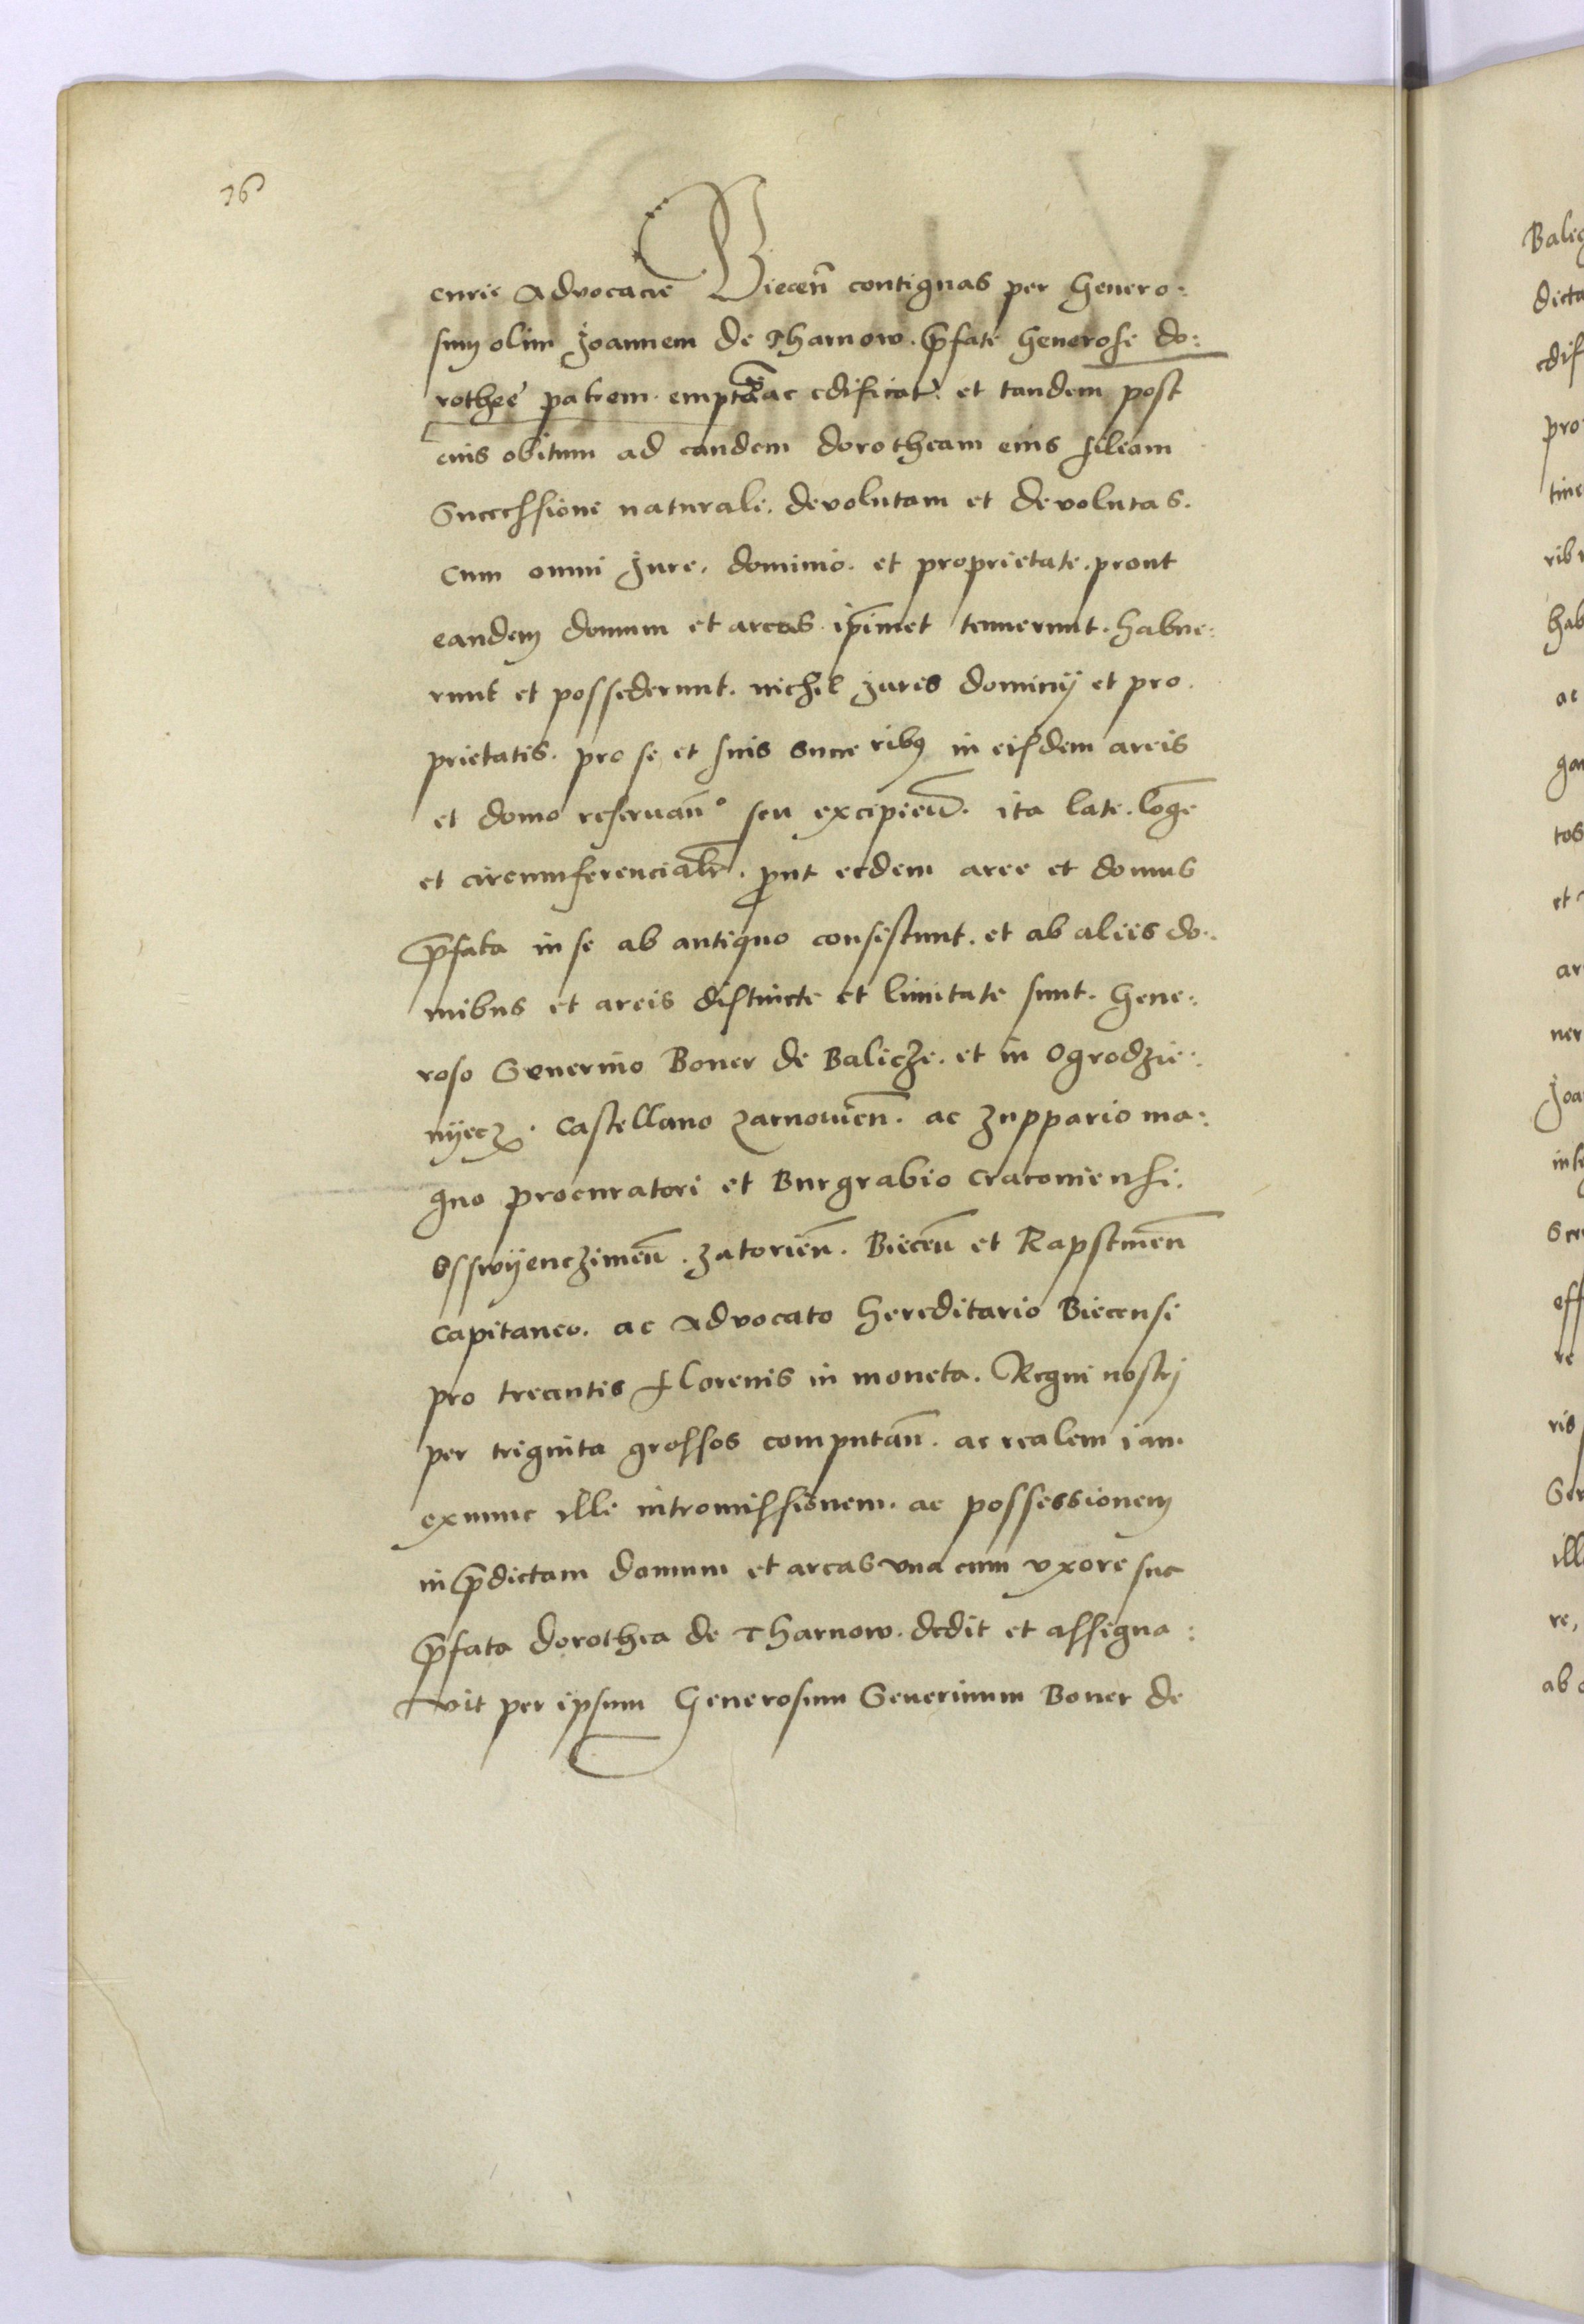 26
curie Advocacie Biecen̄ contiguas per Genero:
sum olim Joannem de Tharnow. p̄fate Generose do:
rothee patrem. empta ac edificat. et tandem post
eius obitum ad eandem dorotheam eius filiam
Successione naturali. devolutam et devolutas.
Cum omni Jure. dominio. et proprietate. prout
eandem domum et areas. ip̄imet tenuerunt. habue:
runt et possederunt. nichil Juris dominij et pro.
prietatis. pro se et suis succe ribus in eisdem areis
et domo reservan̄o seu excipien̄. ita late. lōge
et circumferencialr̄. ꝓut eedem aree et domus
p̄fata in se ab antiquo consistunt. et ab aliis do:
mibus et areis distincte et limitate sunt. Gene:
roso Severino Boner de Balicze. et in Ogrodzie:
nyecz. Castellano Zarnowien̄. ac Zuppario ma:
gno procuratori et Burgrabio Cracouiensi.
Osswyenczimen̄. Zatorien̄. Biecen̄ et Rapstinen̄
Capitaneo. ac Advocato Hereditario Biecensi
pro trecentis florenis in moneta. Regni nostrj
per triginta grossos computan̄. ac realem iam
exnunc illi intromissionem. ac possessionem
in p̄dictam domum et areas vna cum vxore sue
p̄fata Dorothea de Tharnow. dedit et assigna:
vit per ipsum Generosum Seuerinum Boner de